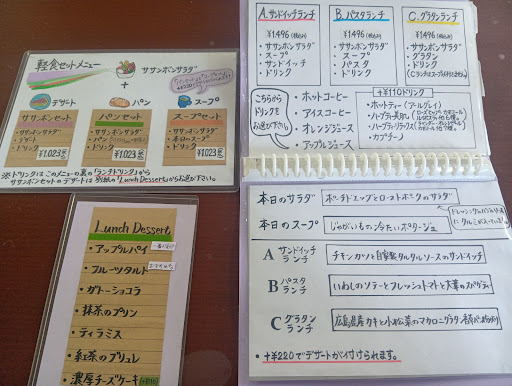 軽食セットメニュー
ササンボンサラダ
+
デザート
パン
スープ
ササンボンセット
・ササンボンサラダ
・デザート
・ドリンク
¥1023
パンセット
・ササンボンサラダ
・パン
・ドリンク
¥1023
スープセット
・ササンボンサラダ
・本日のスープ
・ドリンク
¥1023
※ドリンクはこのメニューの裏の「ランチドリンク」から
ササンボンセットのデザートは別紙の"Lunch Dessert"からお選び下さい。
Lunch Dessert
・アップルパイ
・フルーツタルト
・ガトーショコラ
・抹茶のプリン
・ティラミス
・紅茶のブリュレ
・濃厚チーズケーキ
A. サンドイッチランチ
¥1496 (税込)
・ササンボンサラダ
・スープ
・サンドイッチ
・ドリンク
B. パスタランチ
¥1496 (税込)
・ササンボンサラダ
・スープ
・パスタ
・ドリンク
C. グラタンランチ
¥1496 (税込)
・ササンボンサラダ
・グラタン
・ドリンク
こちらから
ドリンクを
お選び下さい
・ホットコーヒー
・アイスコーヒー
・オレンジジュース
・アップルジュース
+¥110ドリンク
・ホットティー(アールグレイ)
・カプチーノ
本日のサラダ
ポーチドエッグとローストポークのサラダ
本日のスープ
じゃがいもの冷たいポタージュ
A サンドイッチランチ
チキンカツと自家製タルタルソースのサンドイッチ
B パスタランチ
いわしのソテーとフレッシュトマトと大葉のスパゲティ
C グラタンランチ
広島県産カキと小松菜のマカロニグラタン
・+¥220でデザートが付けられます。